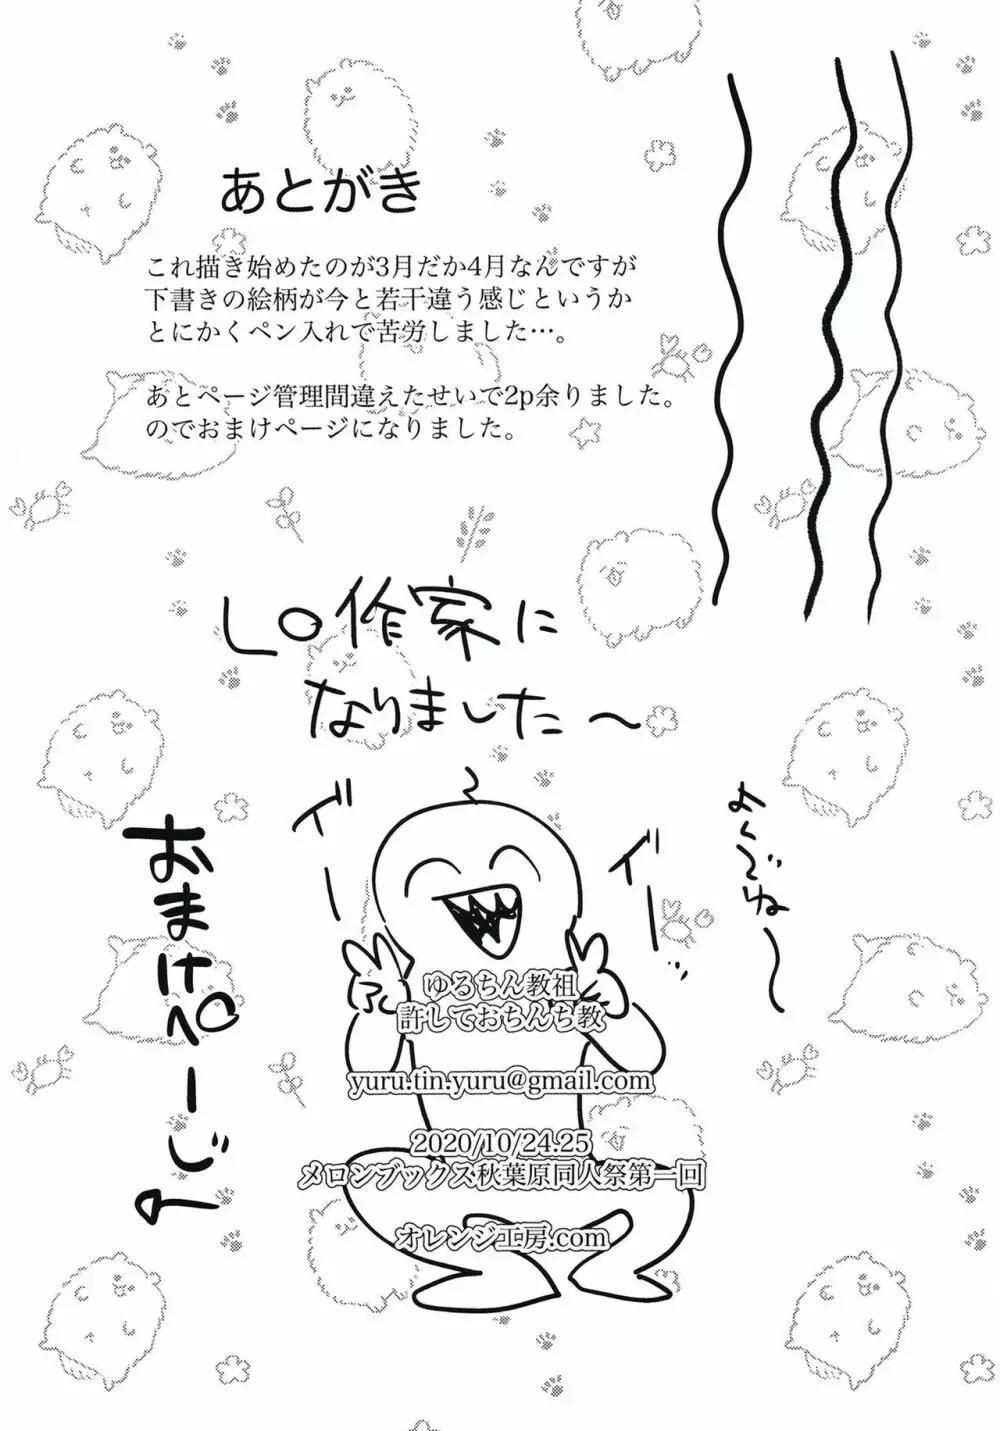 あとがき
これ描き始めたのが3月だか4月なんですが
下書きの絵柄が今と若干違う感じというか
とにかくペン入れで苦労しました…。
あとページ管理間違えたせいで2p余りました。
のでおまけページになりました。
LO作家に
なりました〜
イ゛ー
イ゛ー
よくぞね〜
おまけぺーじ
ゆるちん教祖
許しておちんち教
yuru.tin.yuru@gmail.com
2020/10/24.25
メロンブックス秋葉原同人祭第一回
オレンジ工房.com